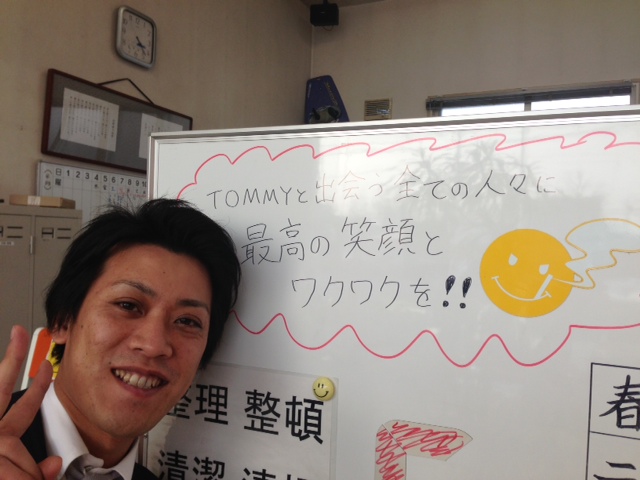 TOMMYと出会う全ての人々に
最高の笑顔と
ワクワクを!!
整理 整頓
清潔
春
日
1 2 3 4 5 6 7 8 9
曜